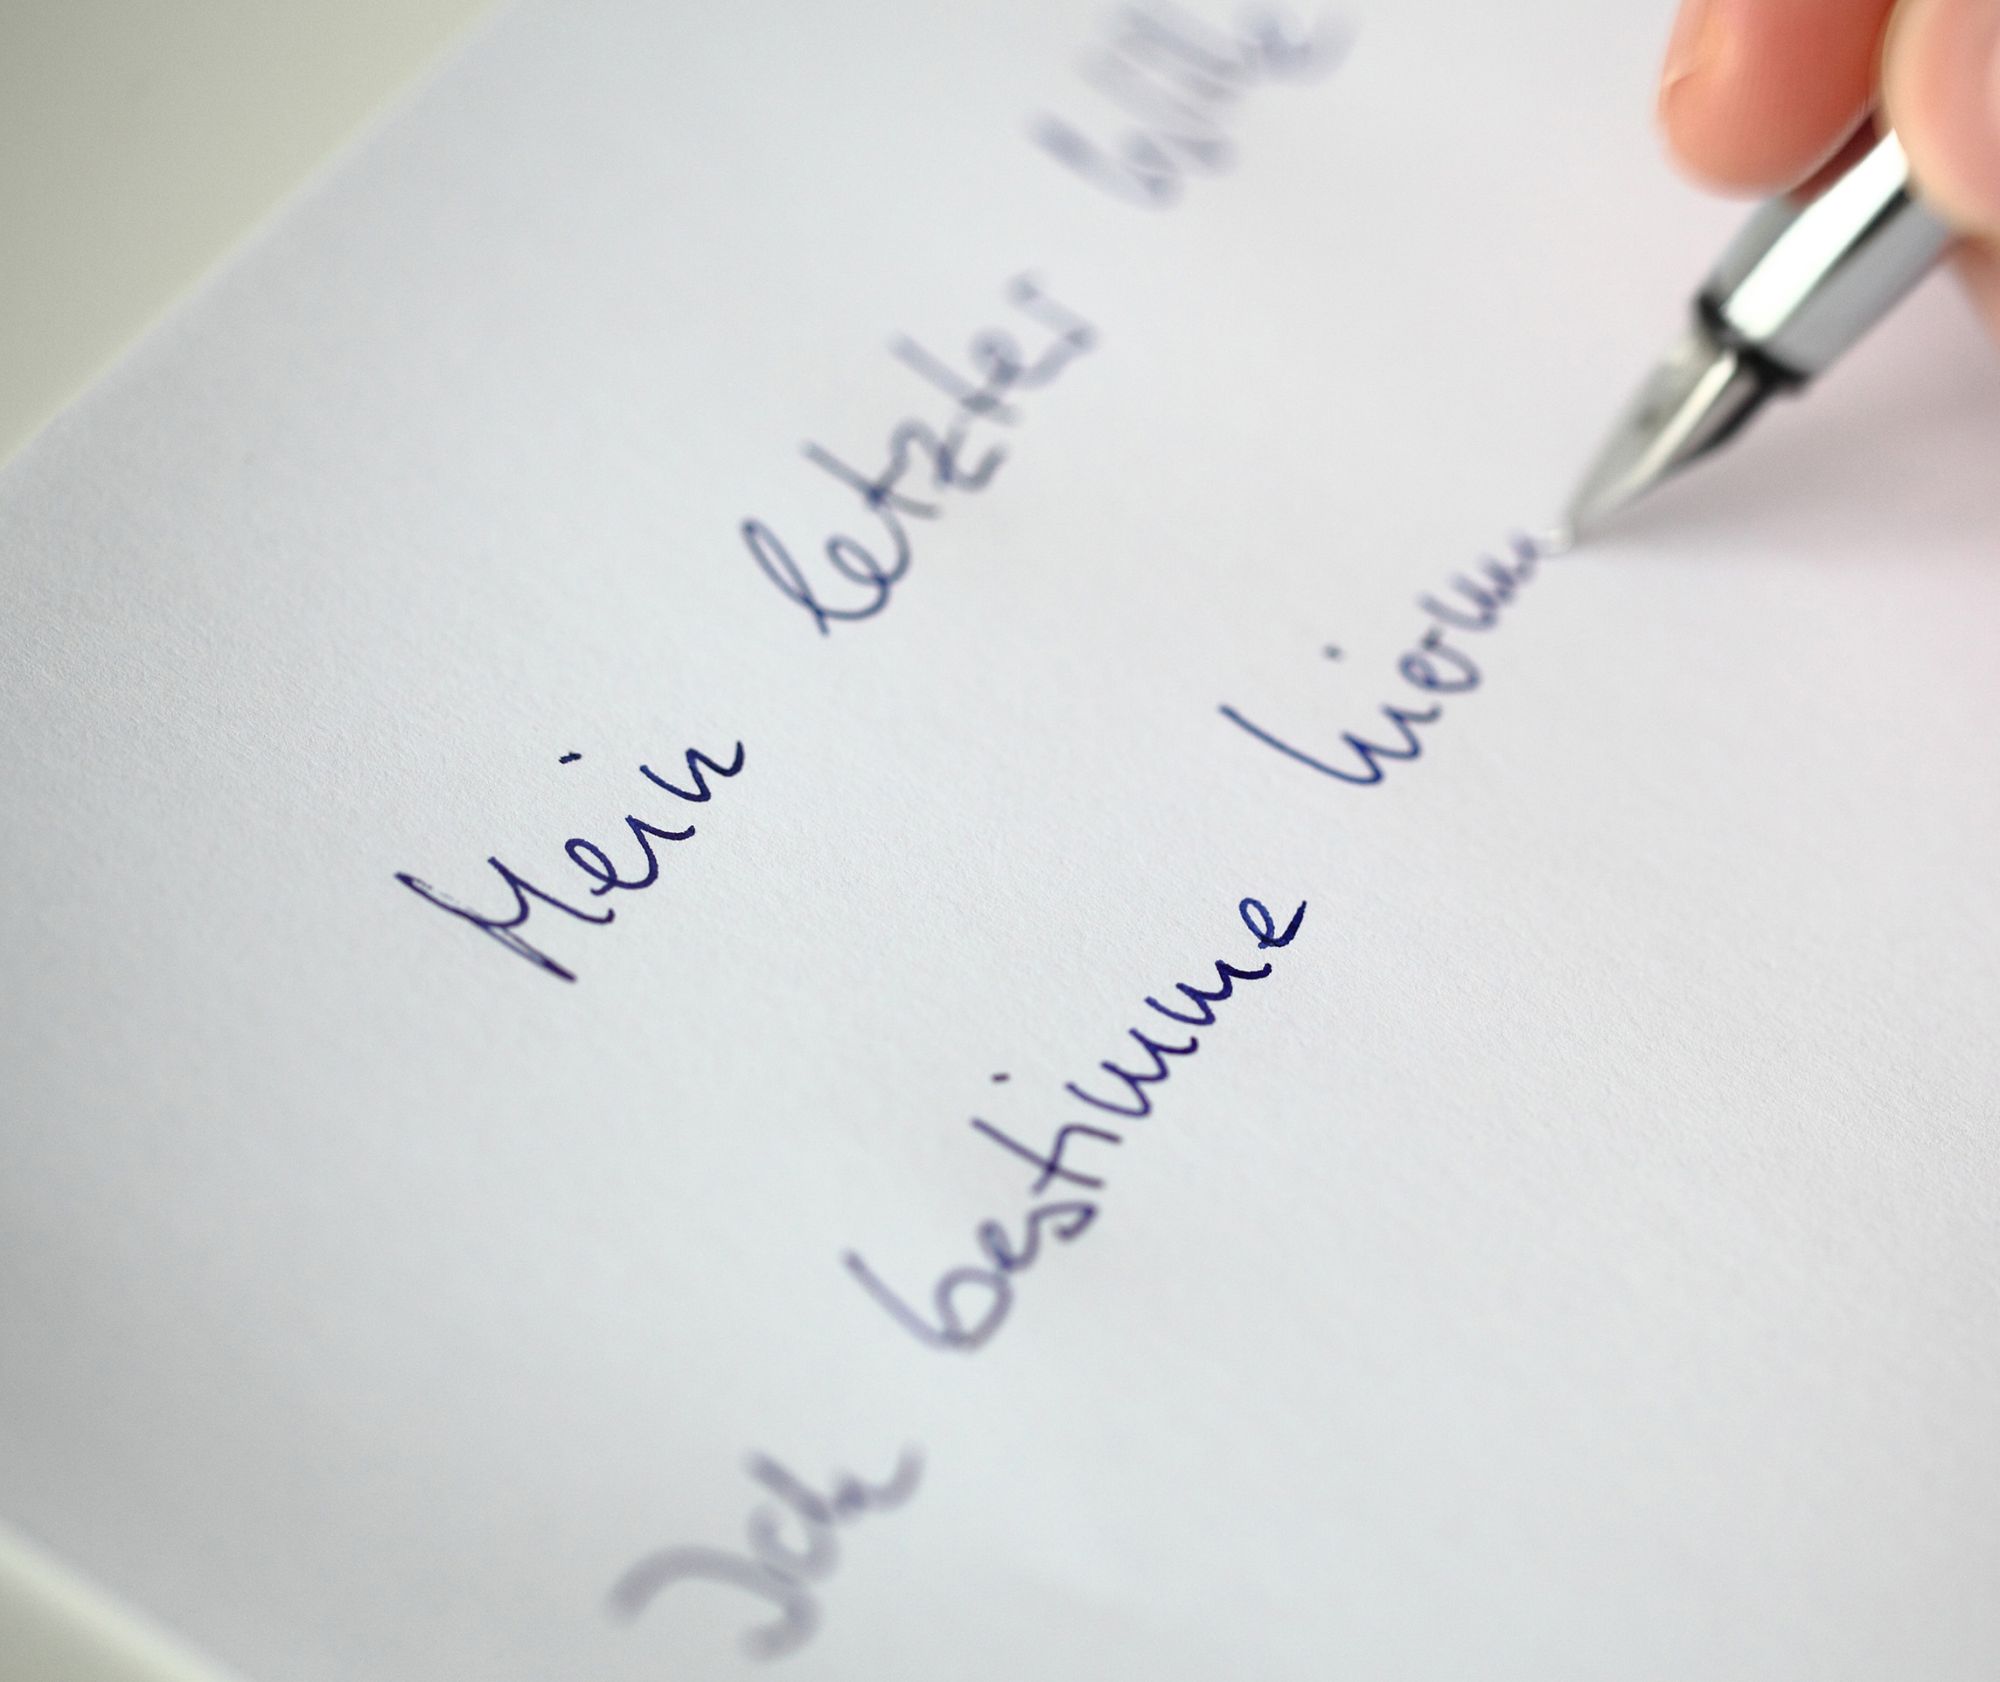 Mein letzter Wille
Ich bestimme hiermi